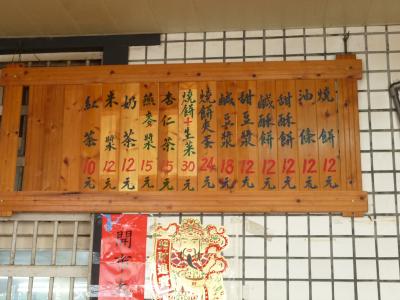 燒餅 12元
油條 12元
甜酥餅 12元
鹹酥餅 12元
甜豆漿 12元
鹹豆漿 18元
燒餅夾蛋 24元
燒餅+生菜 30元
杏仁茶 15元
燕麥漿 15元
奶茶 12元
米漿 12元
紅茶 10元
開